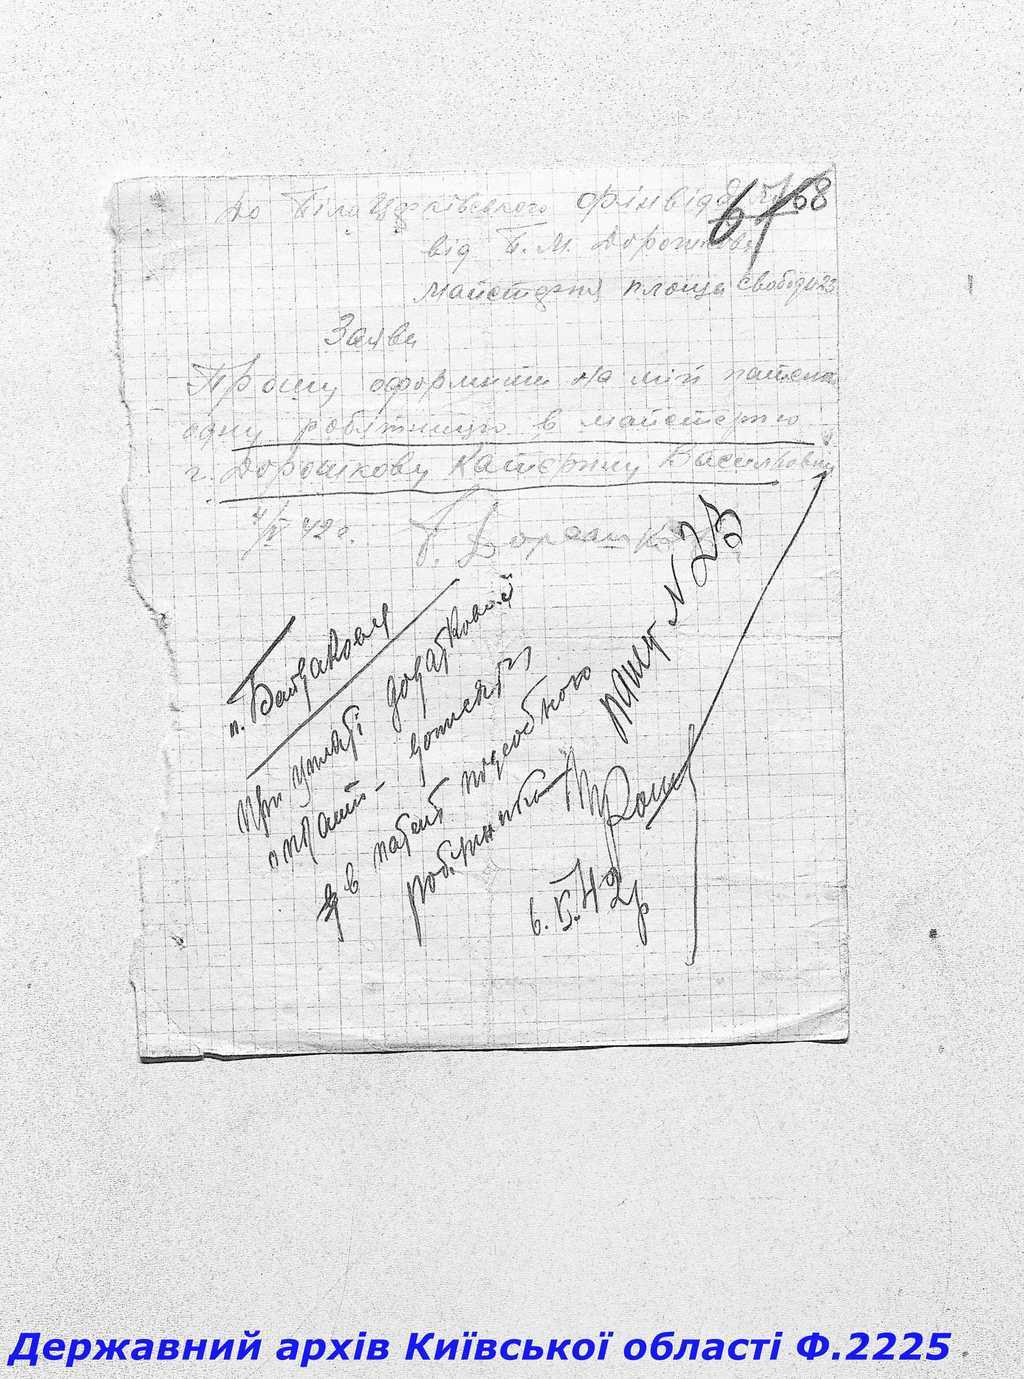 До Білоцерківського фінвідділу
68
від Б. М. Дорошкова
Майстерня площа свободи 23
Заява
Прошу оформити на мій патент
одну робітницю в майстерню
г. Дорошкову Катерину Васильовну
4/V 42 г.
п.
При уплаті додаткової
платні
в патент подсобного
робітника
N 23
6.V.42р
Державний архів Київської області Ф.2225